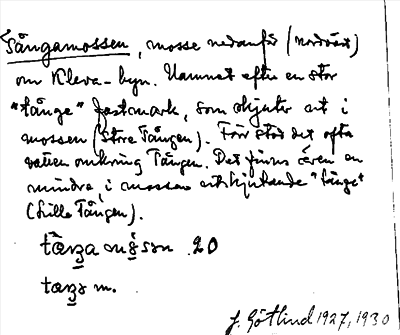 Tångamossen, mosse nedanför (nordväst)
om Kleva-byn. Namnet efter en stor
"tånge" fastmark, som skjuter ut i
mossen (Stora Tången). Förr stod det ofta
vatten omkring Tången. Det finns även en
mindre, i mossen utskjutande "tånge"
(Lilla Tången).
20
m.
J. Götlind 1927, 1930